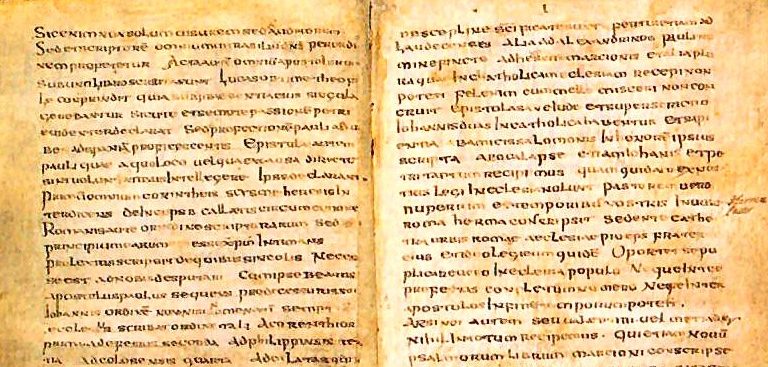 Sic enim non solum uisurem sed & auditorem
Sed & scriptorē omnium mirabiliū dn̄i per ordi
nem profetetur Acta autē omniū apostolorum
sub uno libro scribta sunt Lucas obtime theofi
le conprindit quia sub praesentia eius singula
gerebantur Sicut et semote passionē petri
euidenter declarat Sed & profectionē pauli ab ur
be ad spaniā proficescentis Epistulae autem
pauli quae a quo loco uel qua ex causa directe
sint uolentatibus intellegere Ipse declarant
Primū omnium corintheis scysme heresis in
terdicens deinceps b callaetis circumcisione
Romanis autē ornidine scripturarum sed et
principium earum esse xp̄m Intimans
prolexius scripsit de quibus sincolis Neces
se est ad nobis desputari Cum ipse beatus
apostolus paulus sequens prodecessuris sui
Iohannis ordinē nonnisi nomenatī semptē
ecclesiis scribat ordine tali A corenthios
prima ad efesius seconda Ad philippinses ter
tia Ad colosensis quarta Ad calatas quin
descepline sc̄ificate sunt Fertur etiam ad
Laudecenses Alia ad alexandrinos Pauli no
mine fincte Ad heresem marcionis et alia plu
ra quae In catholicam eclesiam recepi non
potest Fel enim cum melle misceri non con
cruit Epistola sane iude et superscrictio
Iohannis duas In catholica habentur Et sapi
entia ab amicis salomonis In honorē ipsius
scripta Apocalapse etiam Iohanis et pe
tri tantum recipimus quam quidam ex nos
tris legi In eclesia nolunt Pastorem uero
nuperrim et temporibus nostris In urbe
roma herma conscripsit Sedente cathe
tra urbis romae aeclesiae pio ep̄s fratre
eius Et ideo legi eum quidē Oportet se pu
plicare uero In eclesia populo Neque inter
profetas completum numero Neque inter
apostolos In finē temporum potest
Arsinoi autem seu ualentini uel metiadis
Nihil In totum recipemus Qui etiam nouū
psalmorum librum marcioni conscripse